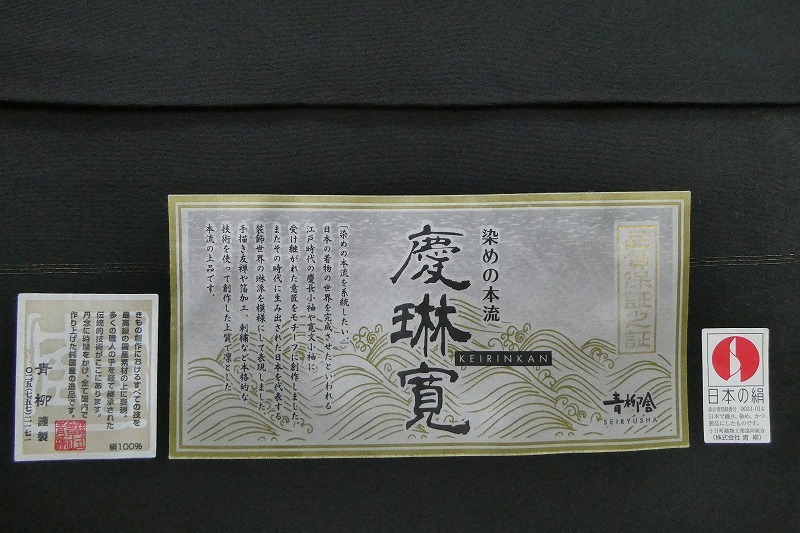 品質保証之証
染めの本流
慶琳寛
KEIRINKAN
青柳舎
SEIRYUSHA
「染めの本流を系統したい…」
日本の着物の世界を完成させたといわれる
江戸時代の慶長小袖や寛文小袖に
受け継がれた意匠をモチーフに創作しました。
またその時代に生み出された日本を代表する、
装飾世界の琳派を模様にして表現しました。
手描き友禅や箔加工、刺繍など本格的な
技術を使って創作した上質で凛とした
本流の上品です。
きもの創作におけるすべての技を
最高級の国産素材の上に表現。
多くの職人の手を経て継承された
伝統的技術がここにあります。
丹念に時間をかけ、全て国内で
作り上げた純国産の逸品です。
青柳 謹製
〇二五(七五七)二一七一
絹100%
日本の絹
表示者登録番号 0031-014
日本で織り、染め、かつ
製品にしたものです。
十日町織物工業協同組合
(株式会社 青 柳)